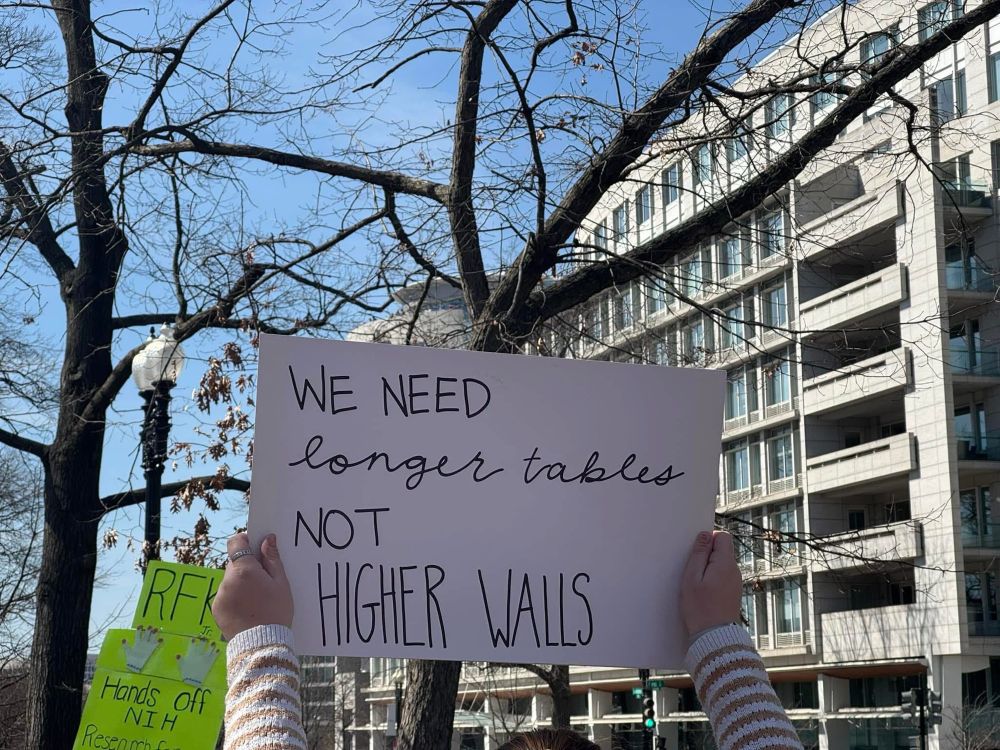 WE NEED
longer tables
NOT
HIGHER WALLS
RFK
Jr.
Hands Off
NIH
Research